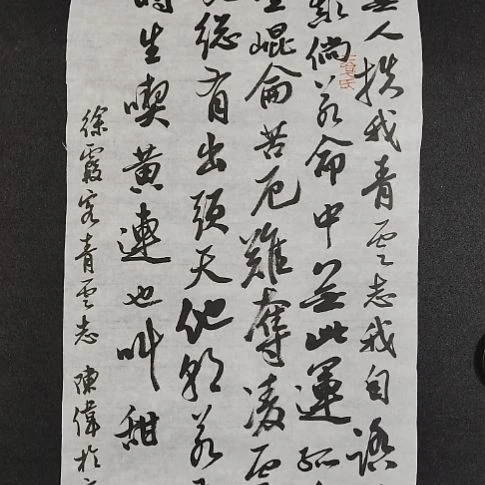 人扶我青雲志我自踏
倘若命中無此運孤
崐侖苦厄難奪凌雲
總有出頭天他朝若
時生喫黄連也叫甜
徐霞客青雲志 陳偉於